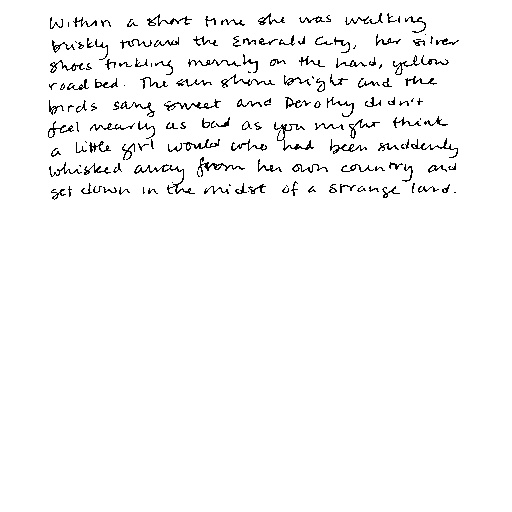 Within a short time she was walking
briskly toward the Emerald City, her silver
shoes tinkling merrily on the hard, yellow
roadbed. The sun shone bright and the
birds sang sweet and Dorothy didn't
feel nearly as bad as you might think
a little girl would who had been suddenly
whisked away from her own country and
set down in the midst of a strange land.